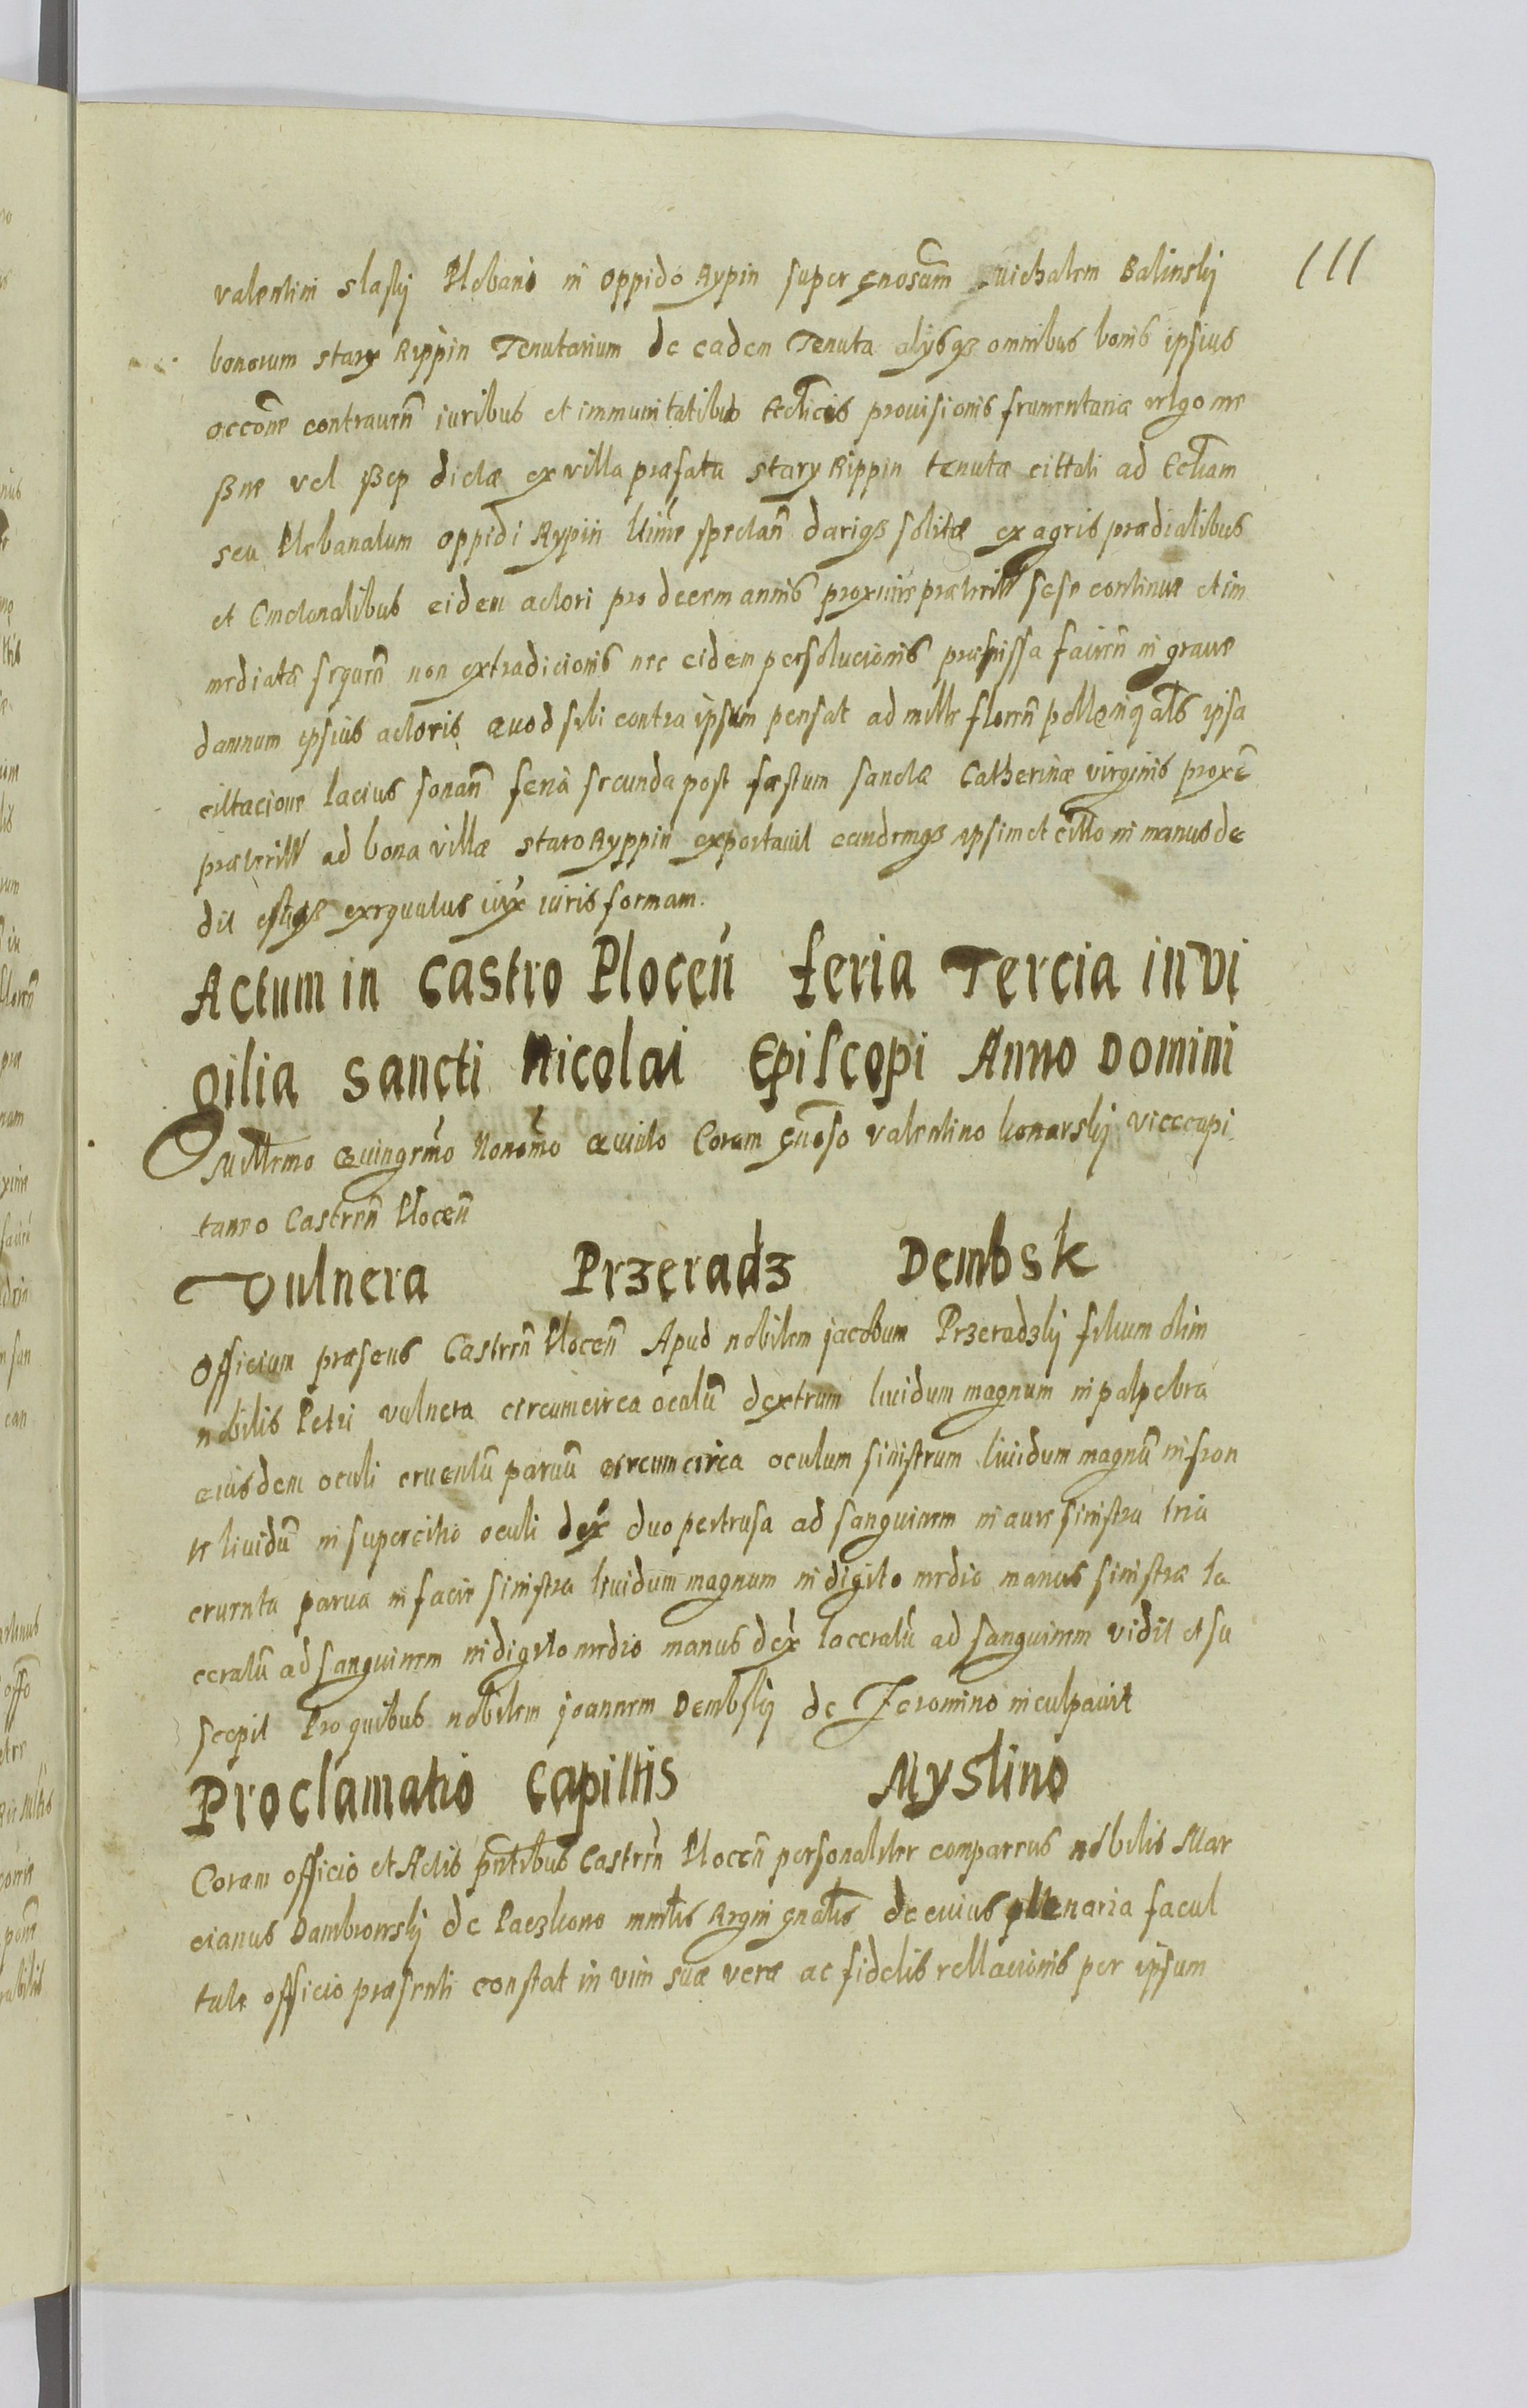 111
valentini slaskÿ Plebani in oppido Rypin super gnosum Michalem Balinskÿ
bonorum stary Rippin Tenutarium de eadem Tenuta alÿsqȝ omnibus bonis ipsius
occõne contravẽn iuribus et immunitatibus Ecclicis provisionis frumentariæ vlgo me
ßne vel ßep dictæ ex villa præfata stary Rippin tenutæ cittati ad Ecliam
seu Plebanatum oppidi Rypin spectañ dariqȝ solitæ ex agris prædialibus
et Cmetonalibus eidem actori pro decem annis proxime præteritis sese continue et im
mediate sequeñ non extradicionis nec eidem persolucionis præmissa facieñ in grave
damnum ipsius actoris quod sibi contra ipsum pensat ad mille floreñ ipsa
cittacione lacius sonañ feria secunda post fæstum sanctæ Catherinæ virginis prox
præterit ad bona villæ staro Ryppin exportavit eandemqȝ ipsimet citto in manus de
dit estqȝ exequutus iux iuris formam.
Actum in Castro Ploceñ feria Tercia in vi
gilia sancti Nicolai Episcopi Anno Domini
Millemo Quingemo Nonomo Quinto Coram gnoso valentino konarskÿ vicecapi
taneo Castreñ Ploceñ
Vulnera Przeradz Dembsk
Officium præsens Castreñ Ploceñ Apud nobilem jacobum Przeradzkÿ filium olim
nobilis Petri vulnera circumcirca oculũ dextrum lividum magnum in palpebra
eiusdem oculi cruentũ parvũ circumcirca oculum sinistrum lividum magnũ in fron
te lividũ in supercilio oculi dex duo pertrusa ad sanguinem in aure sinistra tria
cruenta parva in facie sinistra lividum magnum in digito medio manus sinistræ la
ceratũ ad sanguinem in digito medio manus dex laceratũ ad sanguinem vidit et su
scepit Pro quibus nobilem joannem Dembskÿ de Jeromino inculpavit
Proclamatio Capittis Myslino
Coram officio et Actis pntibus Castreñ Ploceñ personaliter comparens nobilis Mar
cianus Dambrowskÿ de Paczkowo mnlis Regni gnalis de cuius plenaria facul
tate officio præsenti constat in vim suæ veræ ac fidelis rellacionis per ipsum